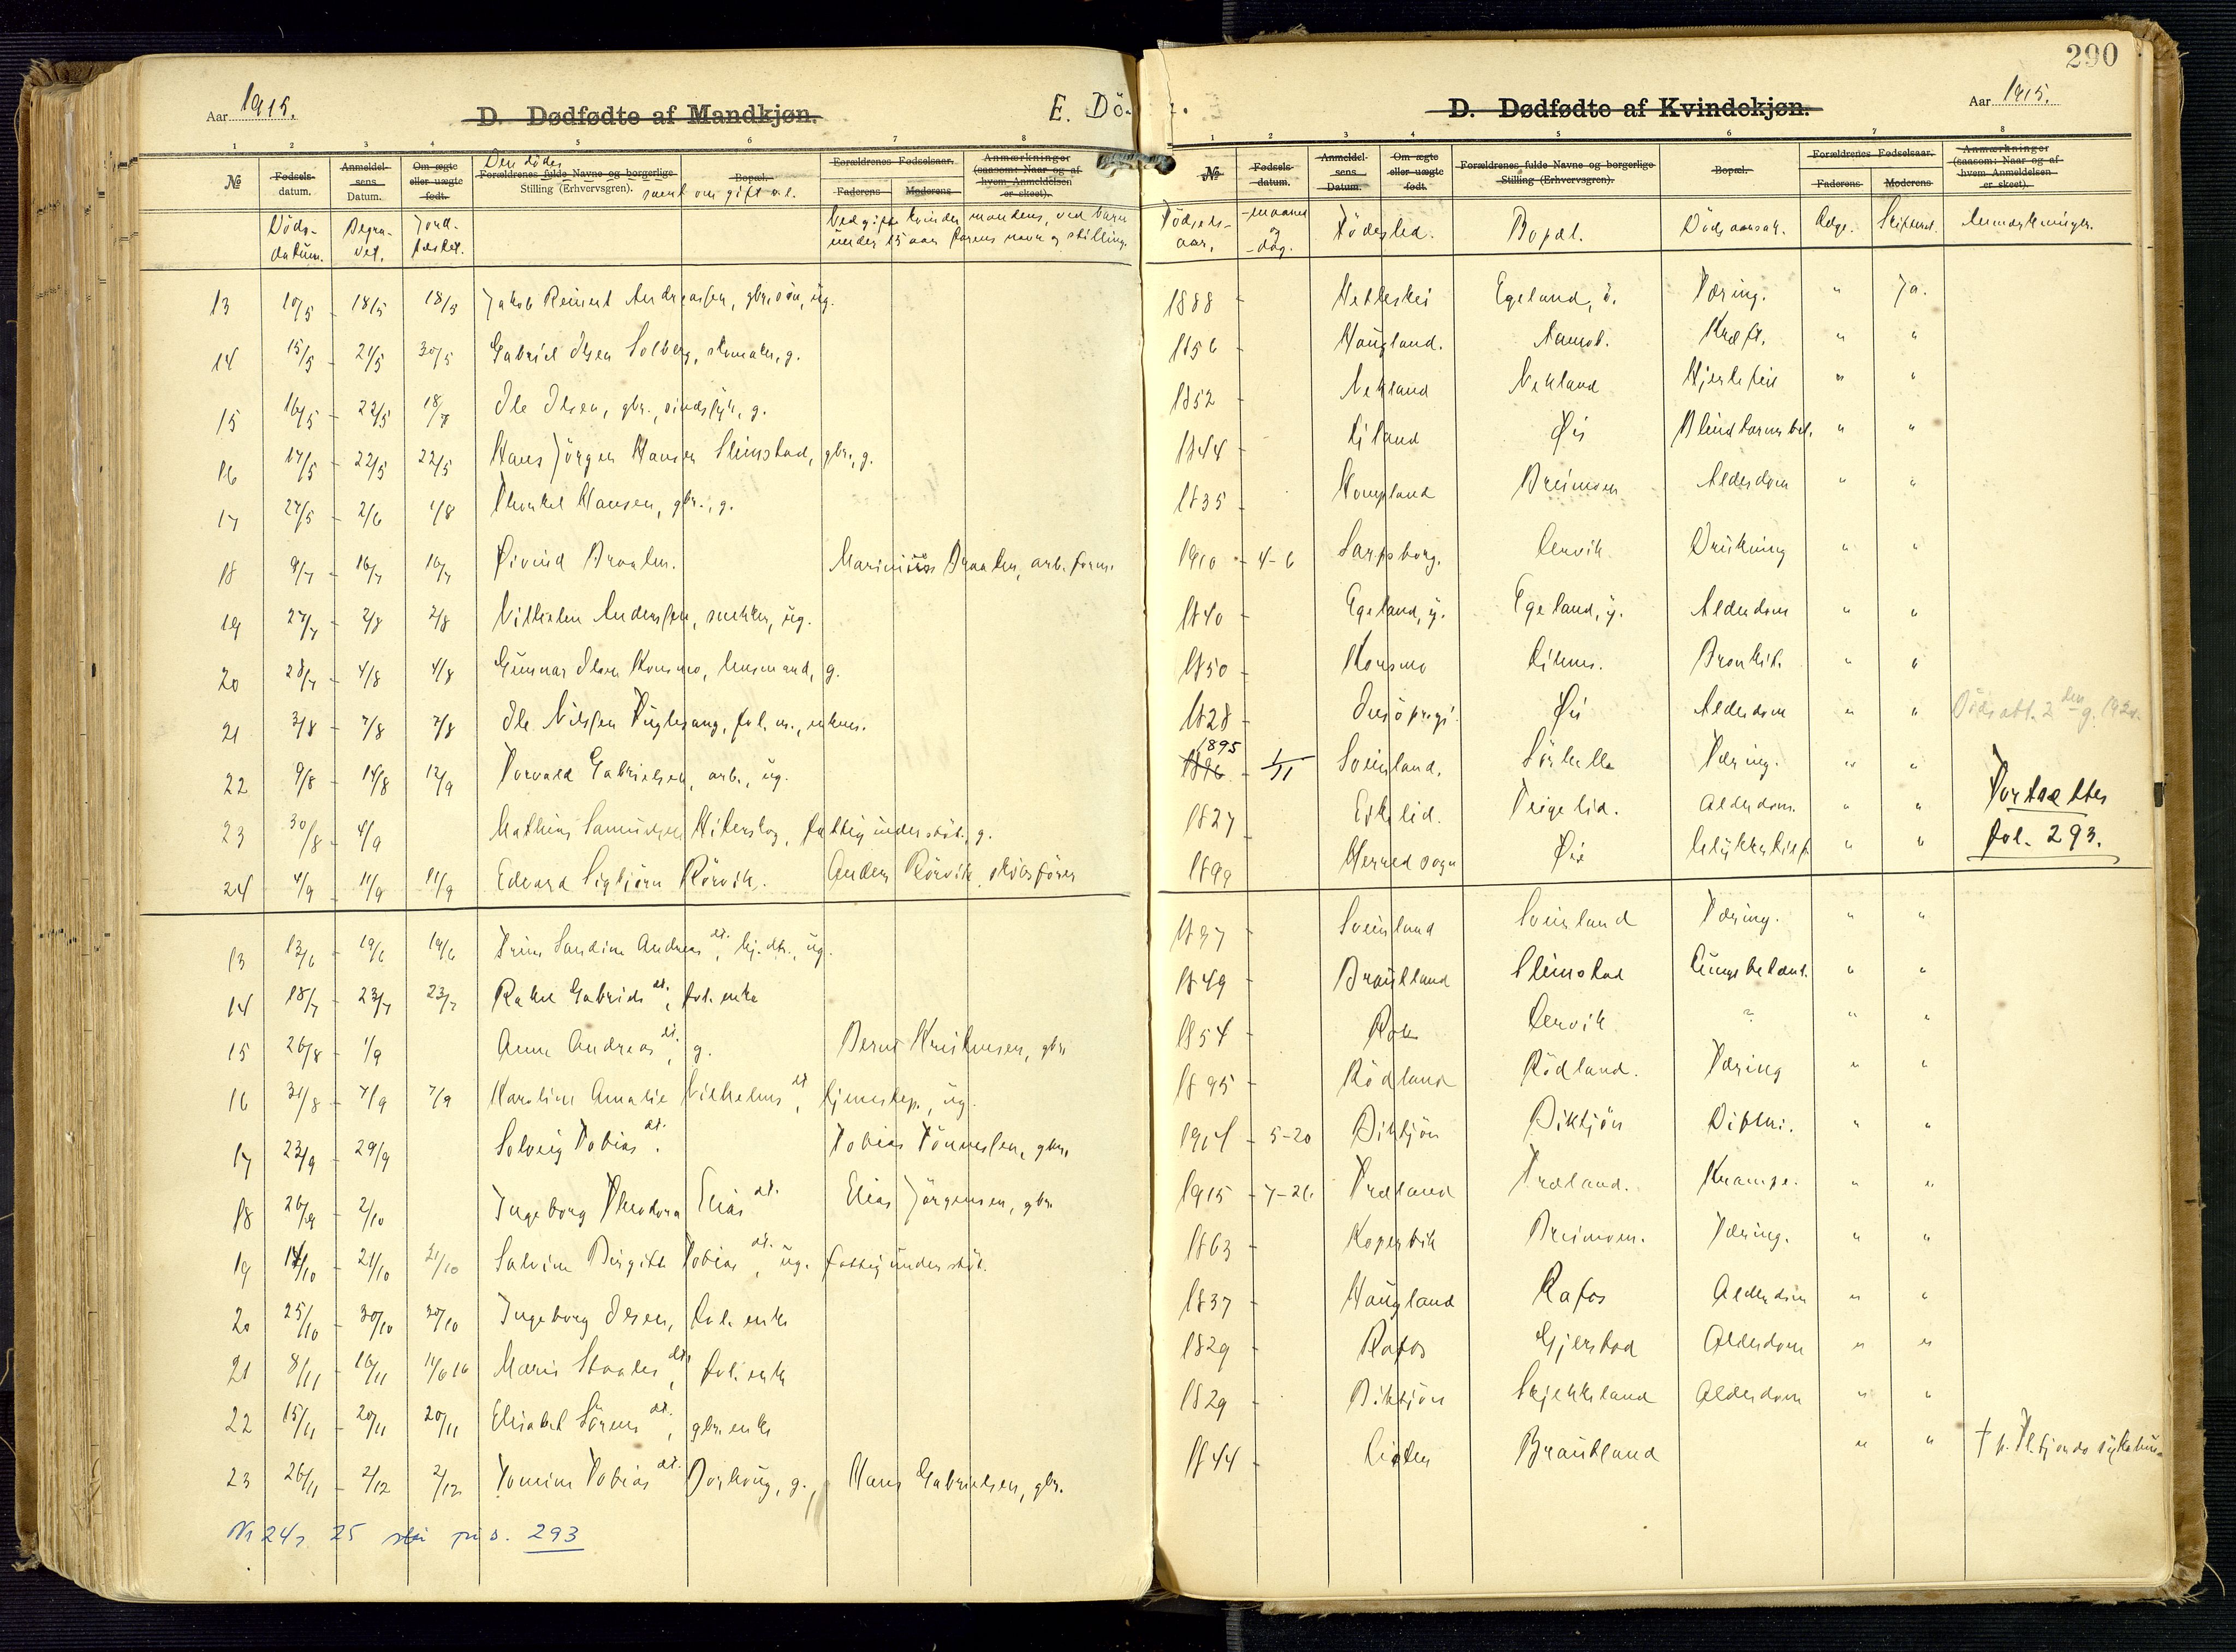 290
Aar 1915.
D. Dødfødte af Mandkjøn.
E. Dö-
D. Dødfødte af Kvindekjøn.
Aar 1915.
1 2 3 4 5 6 7 8
№ Fødsels-datum. Anmeldel-sens Datum. Om ægte eller uægte født. Forældrenes fulde Navne og borgerlige Stilling (Erhvervsgren). Bopæl. Forældrenes Fødselsaar. Faderens Moderens Anmærkninger (saasom: Naar og af hvem Anmeldelsen er skeet).
Den dödes
samt om gift o.l.
Döds-datum. Begra-vet. Jord-fæstet. Ved gifte kvinder mandens, ved barn under 15 aar farens navn og stilling.
13 10/5 - 18/5 18/5 Jakob Reinert Andreassen, gbr.sön, ug.
14 15/5 - 21/5 30/5 Gabriel Olsen Solberg, skomaker, g.
15 16/5 - 22/5 Ole Olsen, gbr., sindssyk, g.
16 17/5 - 22/5 22/5 Hans Jörgen Hansen Slimstad, gbr., g.
17 27/5 - 2/6 1/8 Thorkel Hansen, gbr., g.
18 9/7 - 16/7 16/7 Øivind Braaten. Marinius Braaten, arb. form.
19 27/7 - 2/8 2/8 Vilhelm Anderssen, snekker, ug.
20 28/7 - 4/8 4/8 Gunnar Olsen Konsmo, lensmand, g.
21 3/8 - 7/8 7/8 Ole Nilssen Fuglesang, fol. m., enkem.
22 9/8 - 14/8 12/9 Torvald Gabrielsen, arb., ug.
23 30/8 - 4/9 Mathias Samuelsen Hiterskog, fattigunderstöt., g.
24 4/9 - 11/9 11/9 Edvard Sigbjörn Rörvik. Anders Rörvik, skibsförer
13 13/6 - 19/6 19/6 Trine Sandine Andreas dt., ug.
14 18/7 - 23/7 23/7 Rakel Gabriels dt., fol. enke
15 26/8 - 1/9 Anne Andreas dt., g. Bernt Kristensen, gbr.
16 31/8 - 7/9 7/9 Karoline Amalie Vilhelms dt., tjenestep., ug.
17 23/9 - 29/9 Solveig Tobias dt. Tobias Tönnessen, gbr.
18 26/9 - 2/10 Ingeborg Theodora Elias dt. Elias Jörgensen, gbr.
19 14/10 - 21/10 21/10 Salvine Birgitte Tobias dt., ug. fattigunderstöt.
20 25/10 - 30/10 30/10 Ingeborg Olsen, fol. enke
21 8/11 - 16/11 Maria Staales dt., fol. enke
22 15/11 - 20/11 20/11 Elisabet Sörens dt., gbr. enke
23 26/11 - 2/12 2/12 Tomine Tobias dt. g., Hans Gabrielsen, gbr.
Nr 24, 25 står på s. 293
1 2 3 4 5 6 7 8
№ Fødsels-datum. Anmeldel-sens Datum. Om ægte eller uægte født. Forældrenes fulde Navne og borgerlige Stilling (Erhvervsgren). Bopæl. Forældrenes Fødselsaar. Faderens Moderens Anmærkninger (saasom: Naar og af hvem Anmeldelsen er skeet).
Födsels-aar, -maaned og -dag. Födested. Bopæl. Dödsaarsak. Anmerkninger.
1888 - Egeland, ö. Tæring. " Ja.
1856 - Haugland. Kræft. " "
1852 - Nekland Nekland Hjertefeil " "
1844 - Eiland Øie Blindtarmsbet. " "
1835 - Haugland Breimoen Alderdom " "
1910 - 4-6 Sarpsborg. Lervik Drukning " "
1840 - Egeland, y. Egeland, y. Alderdom " "
1850 - Konsmo Eikem. Bronkit. " "
1828 - Øie Alderdom " "
1896 1895 - Sveinland. Sörhelle Tæring. " "
1827 - Eskelid. Teigelid. Alderdom. " " Fortsættes
1899 - Herred sogn Øie Ulykkestilf. " " fol. 293.
1897 - Sveinland Sveinland Tæring. " "
1849 - Brautland Slimstad Lungebetænd. " "
1854 - Lervik ? " "
1895 - Rödland Rödland. Tæring " "
1914 - 5-20 Birktjön Birktjön Difteri. " "
1915 - 7-26 Træland Træland. Krampe. " "
1863 - Kopervik Breimoen. Tæring. " "
1837 - Haugland Rafos Alderdom " "
1829 - Rafos Gjerstad Alderdom " "
1829 - Birktjön Skjekkeland Alderdom " "
1844 - Brautland " " † p. Flekkefjords sykehus.